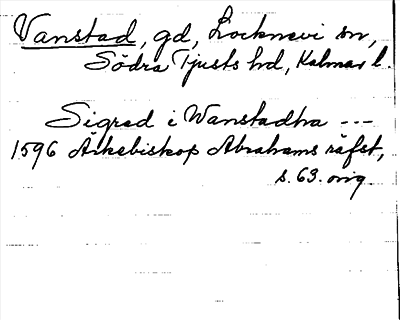 Vanstad, gd, Locknevi sn,
Södra Tjusts hd, Kalmar l.
Sigred i Wanstadha ---
1596 Ärkebiskop Abrahams räfst,
s. 63. orig.